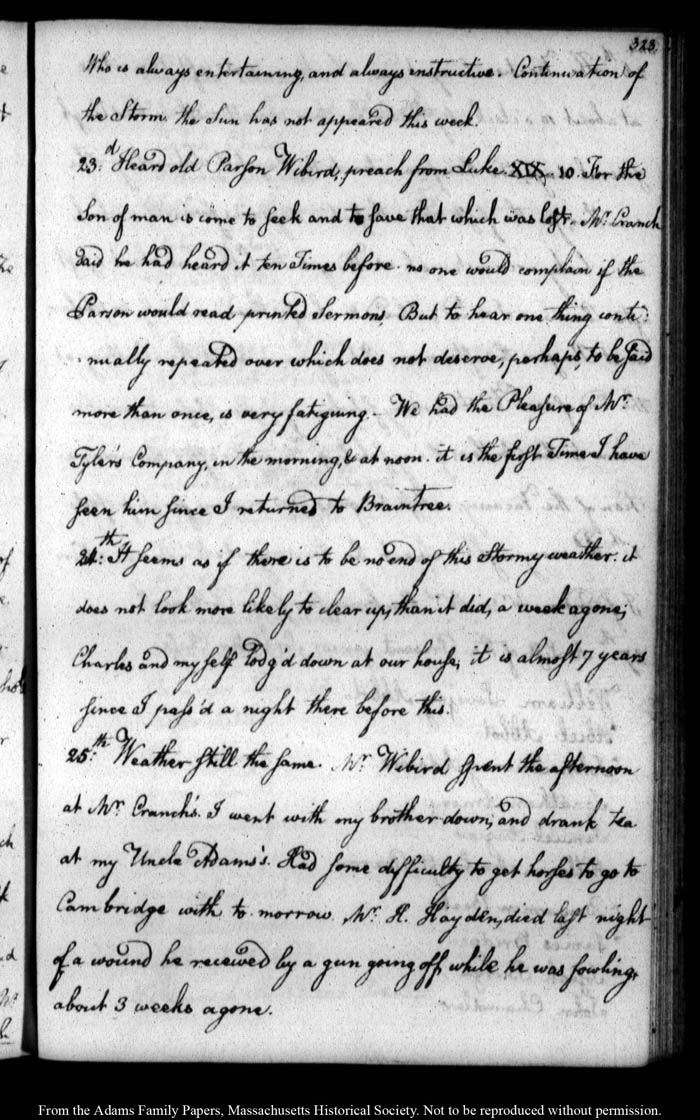 323
Who is always entertaining, and always instructive. Continuation of
the Storm the Sun has not appeared this week.
23.d Heard old Parson Wibird, preach from Luke. XIX. 10. For the
Son of man is come to seek and to save that which was lost. Mr. Cranch
said he had heard it ten Times before. no one would complain if the
Parson would read printed Sermons, But to hear one thing conti:
nually repeated over which does not deserve, perhaps, to be said
more than once, is very fatiguing. We had the Pleasure of Mr.
Tyler's Company, in the morning, & at noon. it is the first Time I have
seen him since I returned to Braintree.
24.th It seems as if there is to be no end of this Stormy weather. it
does not look more likely to clear up, than it did, a week agone;
Charles and myself lodg'd down at our house, it is almost 7 years
since I pass'd a night there before this.
25.th Weather still the same. Mr. Wibird spent the afternoon
at Mr. Cranch's. I went with my brother down, and drank tea
at my Uncle Adams's. Had some difficulty to get horses to go to
Cambridge with to morrow. Mr. H. Hayden, died last night
of a wound he received by a gun going off while he was fowling,
about 3 weeks agone.
From the Adams Family Papers, Massachusetts Historical Society. Not to be reproduced without permission.